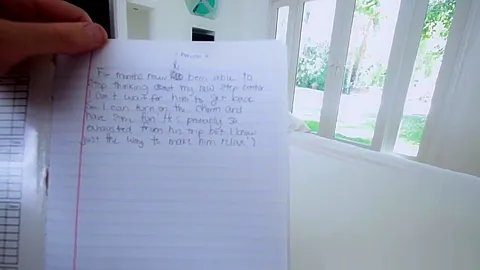 For months now been able to
stop thinking about my new step father
I can't wait for him to get back
So I can turn on the charm and
have some fun. It's probably so
exhausted from his trip but I know
just the way to make him relax")